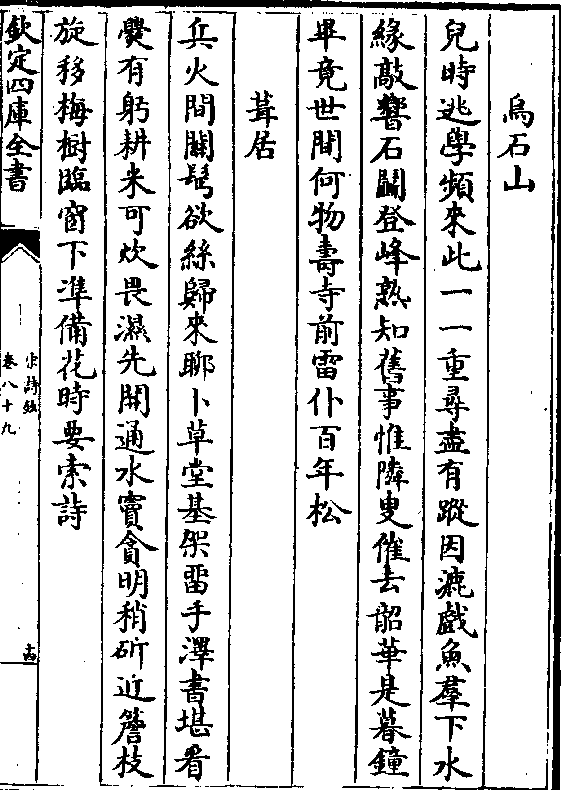 烏石山
兒時逃學頻來此一一重尋盡有蹤因漉戲魚羣下水
緣敲響石鬭登峰熟知舊事惟隣叟催去韶華是暮鐘
畢竟世間何物壽寺前雷仆百年松
葺居
兵火間關髩欲絲歸來聊卜草堂基架畱手澤書堪看
爨有躬耕米可炊畏濕先開通水竇貪明稍斫近簷枝
旋移梅樹臨窗下準備花時要索詩
欽定四庫全書
宋詩鈔
卷八十九